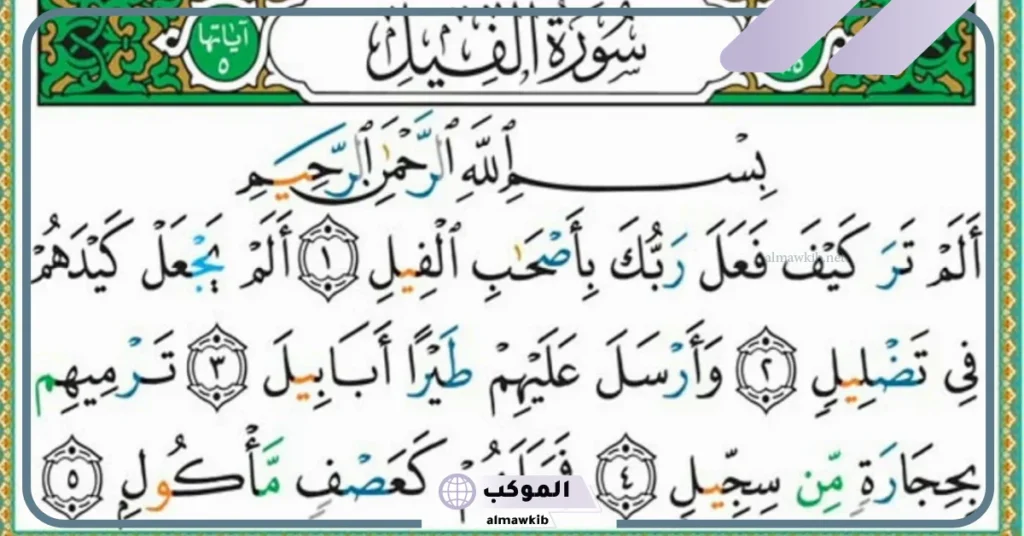 سُورَةُ الْفِيلِ
آيَاتُهَا ٥
بِسْمِ ٱللَّهِ ٱلرَّحْمَٰنِ ٱلرَّحِيمِ
أَلَمْ تَرَ كَيْفَ فَعَلَ رَبُّكَ بِأَصْحَٰبِ ٱلْفِيلِ ١ أَلَمْ يَجْعَلْ كَيْدَهُمْ
almawkib.net
فِى تَضْلِيلٍ ٢ وَأَرْسَلَ عَلَيْهِمْ طَيْرًا أَبَابِيلَ ٣ تَرْمِيهِم
بِحِجَارَةٍ مِّن سِجِّيلٍ ٤ كَعَصْفٍ مَّأْكُولٍ ٥
الموكب
almawkib